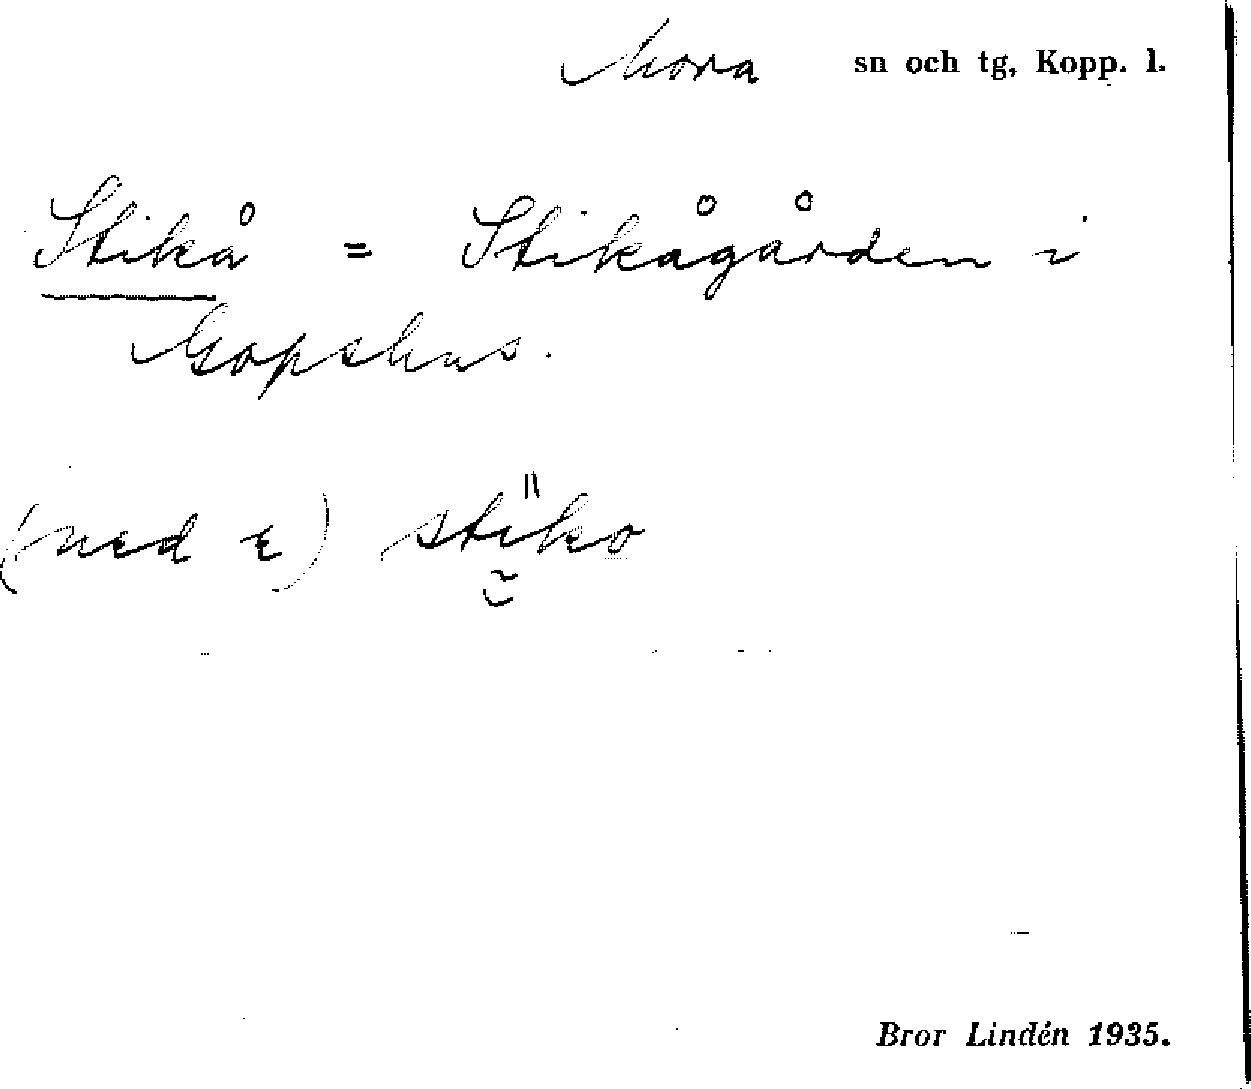 Mora sn och tg, Kopp. l.
Stikå = Stikågården i
Gopshus.
(ned ɛ) stiko
Bror Lindén 1935.